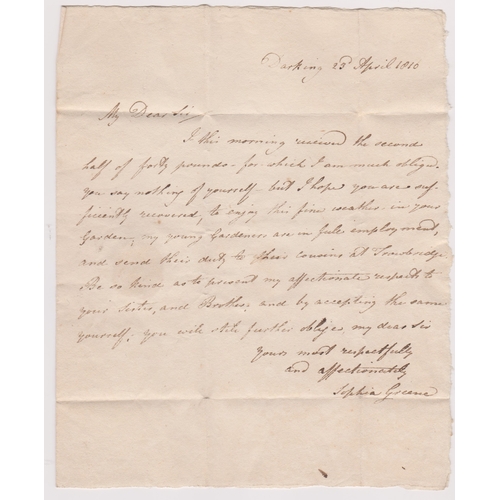 Darking 23 April 1810
My Dear Sir
I this morning received the second
half of forty pounds - for which I am much obliged
you say nothing of yourself - but I hope you are suf-
ficiently recovered, to enjoy this fine weather - in your
Garden, my young Gardeners are in full employment,
and send their duty to their cousins at Trowbridge
Be so kind as to present my affectionate respects to
your Sister, and Brother; and by accepting the same
yourself; you will still further oblige, my dear Sir
yours most respectfully
and affectionately
Sophia Greene